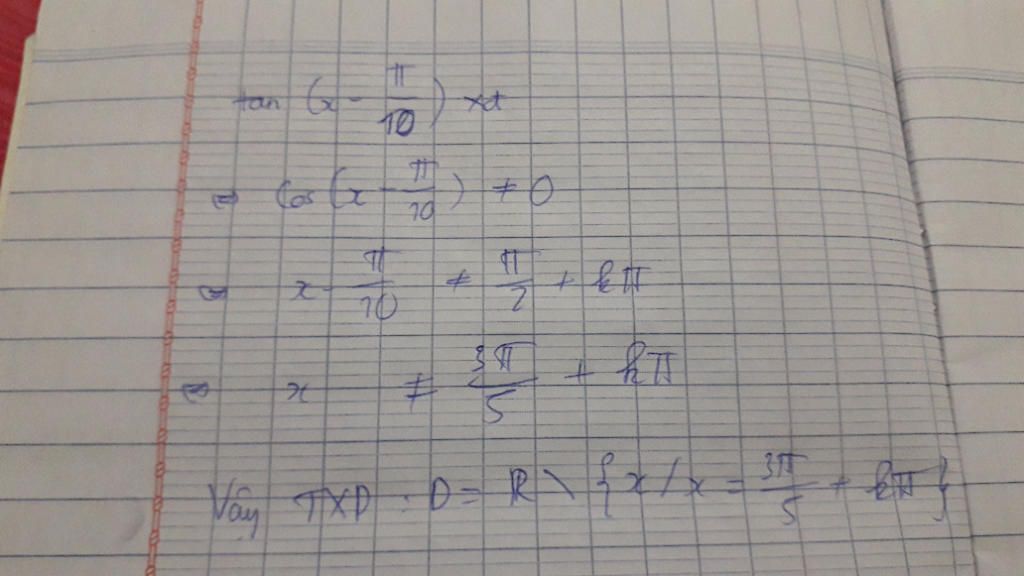 tan (x - π/10) xđ
⇔ cos (x - π/10) ≠ 0
⇔ x - π/10 ≠ π/2 + kπ
⇔ x ≠ 3π/5 + kπ
Vậy TXD : D = R \ { x / x = 3π/5 + kπ }